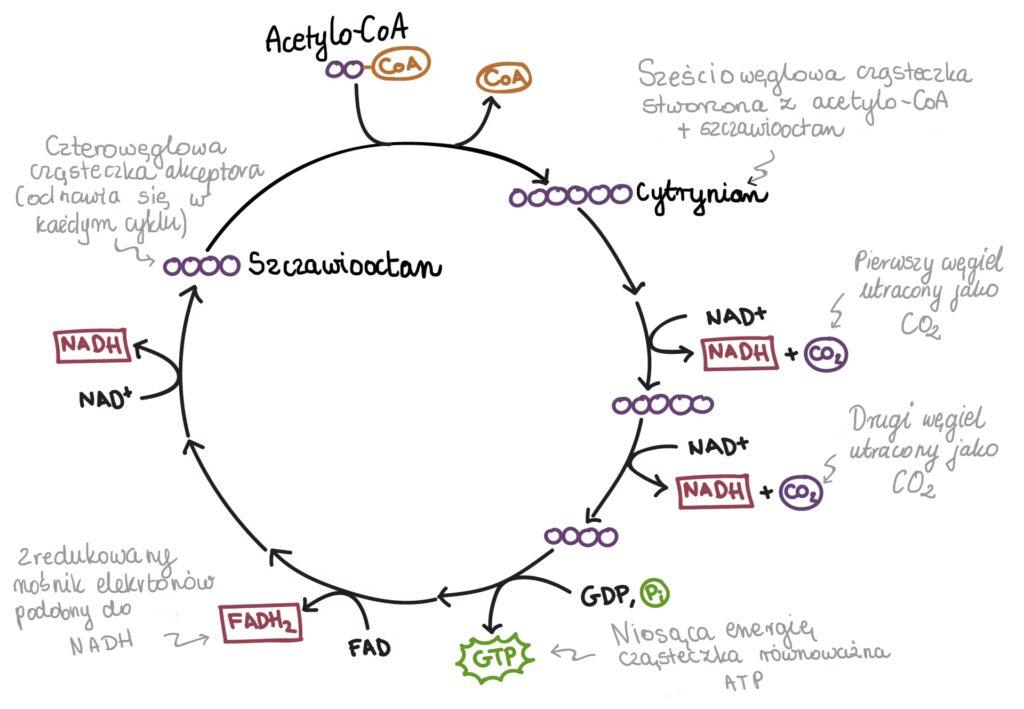 Acetylo-CoA
CoA
CoA
Sześciowęglowa cząsteczka
stworzona z acetylo-CoA
+ szczawiooctan
Czterowęglowa
cząsteczka akceptora
(odnawia się w
każdym cyklu)
Cytrynian
Szczawiooctan
Pierwszy węgiel
utracony jako
CO2
NAD+
NADH + CO2
NADH
NAD+
Drugi węgiel
utracony jako
CO2
NAD+
NADH + CO2
Zredukowany
nośnik elekrtonów
podobny do
NADH
FADH2
FAD
GDP, Pi
GTP
Niosąca energię
cząsteczka równoważna
ATP